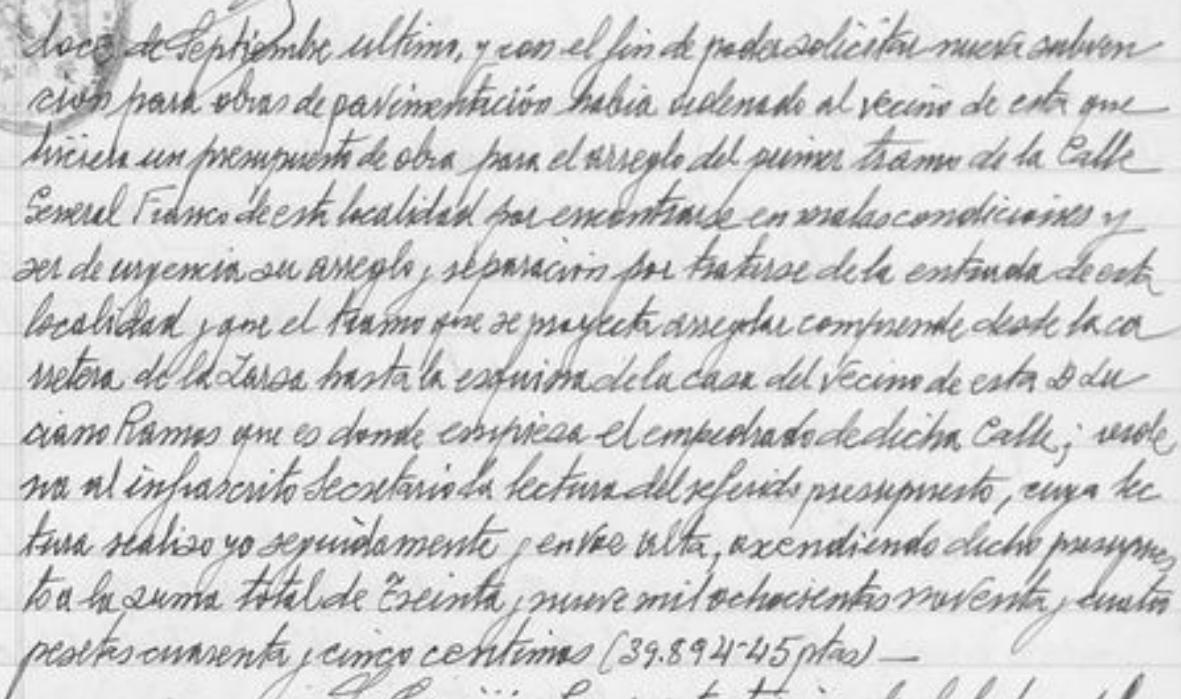 doce de Septiembre ultimo, y con el fin de poder solicitar nueva subven
cion para obras de pavimentación habia ordenado al vecino de esta que
hiciera un presupuesto de obra para el arreglo del primer tramo de la Calle
General Franco de esta localidad por encontrarse en malas condiciones y
ser de urgencia su arreglo y reparación por tratarse de la entrada de esta
localidad y que el tramo que se proyecta arreglar comprende desde la ca
rretera de la Zarsa hasta la esquina de la casa del vecino de esta D Lu
ciano Ramos que es donde empiesa el empedrado de dicha Calle; orde
na al infrascrito Secretario la lectura del referido presupuesto, cuya lec
tura realiso yo seguidamente y en voz alta, axendiendo dicho presupues
to a la suma total de Treinta y nueve mil ochocientas noventa y cuatro
pesetas cuarenta y cinco centimos (39.894-45 ptas) —